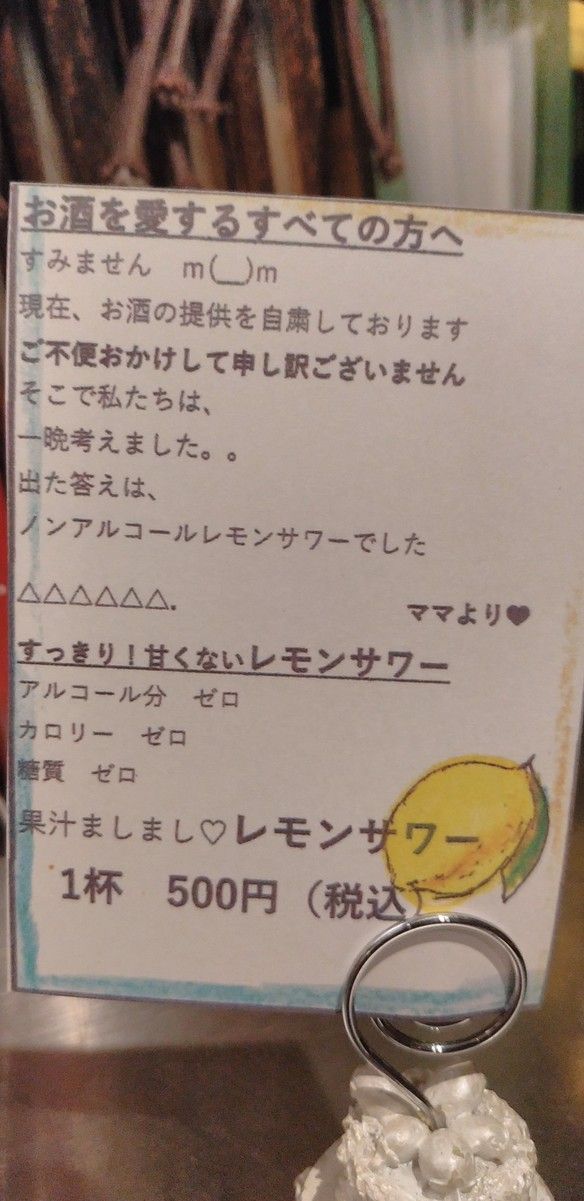 お酒を愛するすべての方へ
すみません　m(__)m
現在、お酒の提供を自粛しております
ご不便おかけして申し訳ございません
そこで私たちは、
一晩考えました。。
出た答えは、
ノンアルコールレモンサワーでした
△△△△△△.　ママより♥
すっきり！甘くないレモンサワー
アルコール分　ゼロ
カロリー　ゼロ
糖質　ゼロ
果汁ましまし♡レモンサワー
1杯　500円（税込）